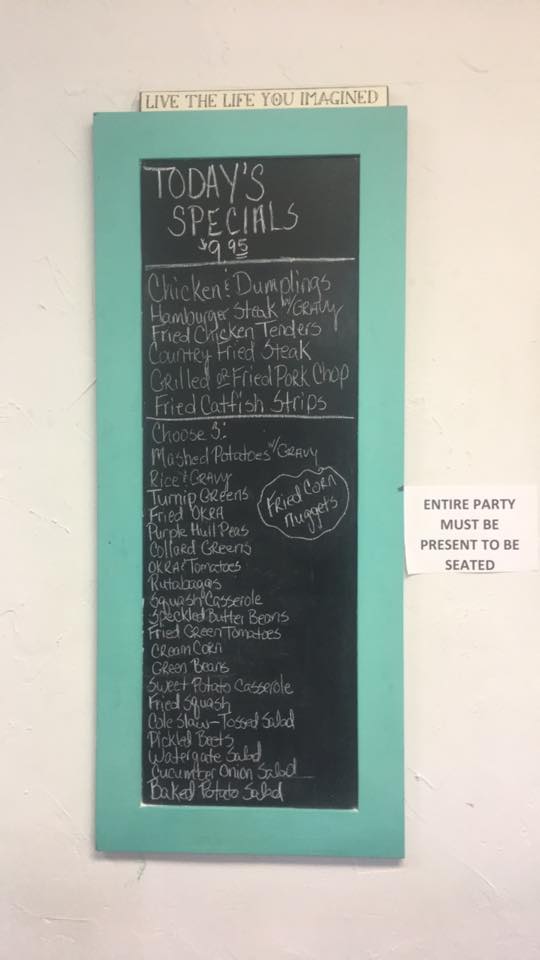 LIVE THE LIFE YOU IMAGINED
TODAY'S
SPECIALS
$9.95
Chicken & Dumplings
Hamburger Steak w/GRAVY
Fried Chicken Tenders
Country Fried Steak
Grilled OR Fried Pork Chop
Fried Catfish Strips
Choose 3:
Mashed Potatoes w/GRAVY
Rice & GRAVY
Turnip Greens
Fried OKRA
Purple Hull Peas
Collard Greens
OKRA & Tomatoes
Rutabagas
Squash Casserole
Speckled Butter Beans
Fried Green Tomatoes
Cream Corn
Green Beans
Sweet Potato Casserole
Fried Squash
Cole Slaw - Tossed Salad
Pickled Beets
Watergate Salad
Cucumber Onion Salad
Baked Potato Salad
Fried Corn
Nuggets
ENTIRE PARTY
MUST BE
PRESENT TO BE
SEATED